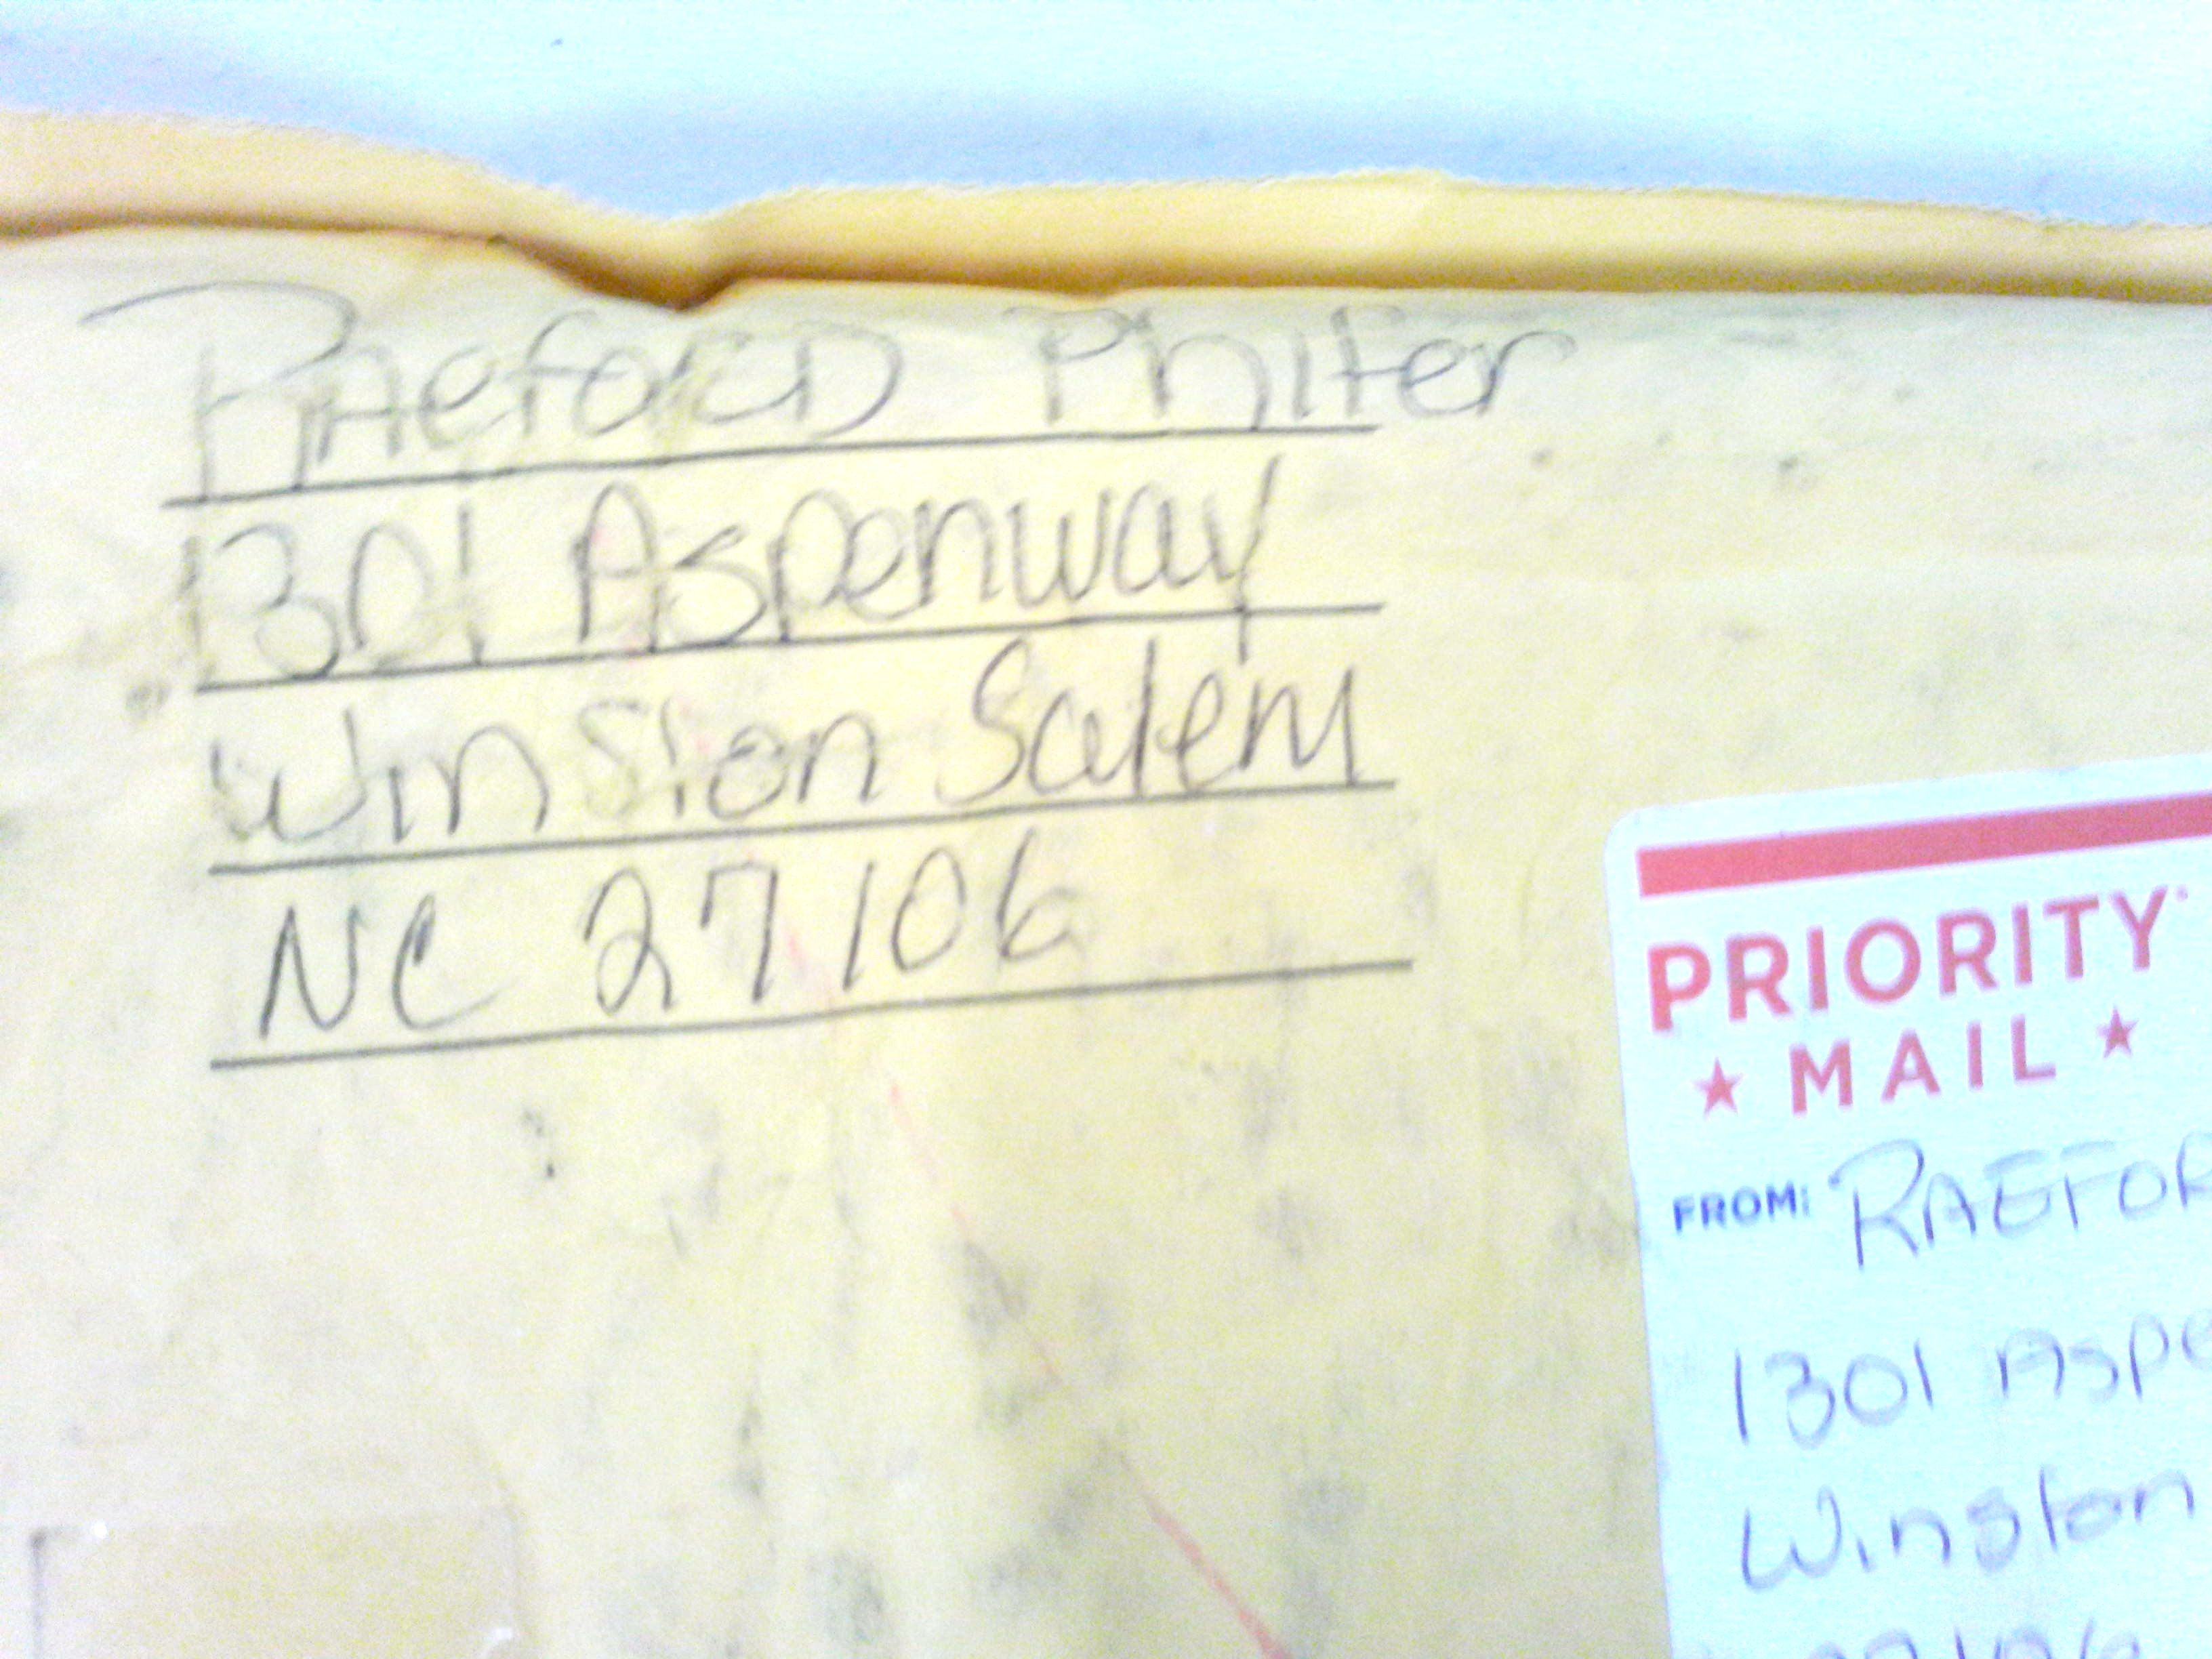 RAEfoRD Phifer
1301 Aspenway
Winston Salem
NC 27106
PRIORITY
MAIL
FROM: RAEFOR
1301 Aspe
Winston
27106